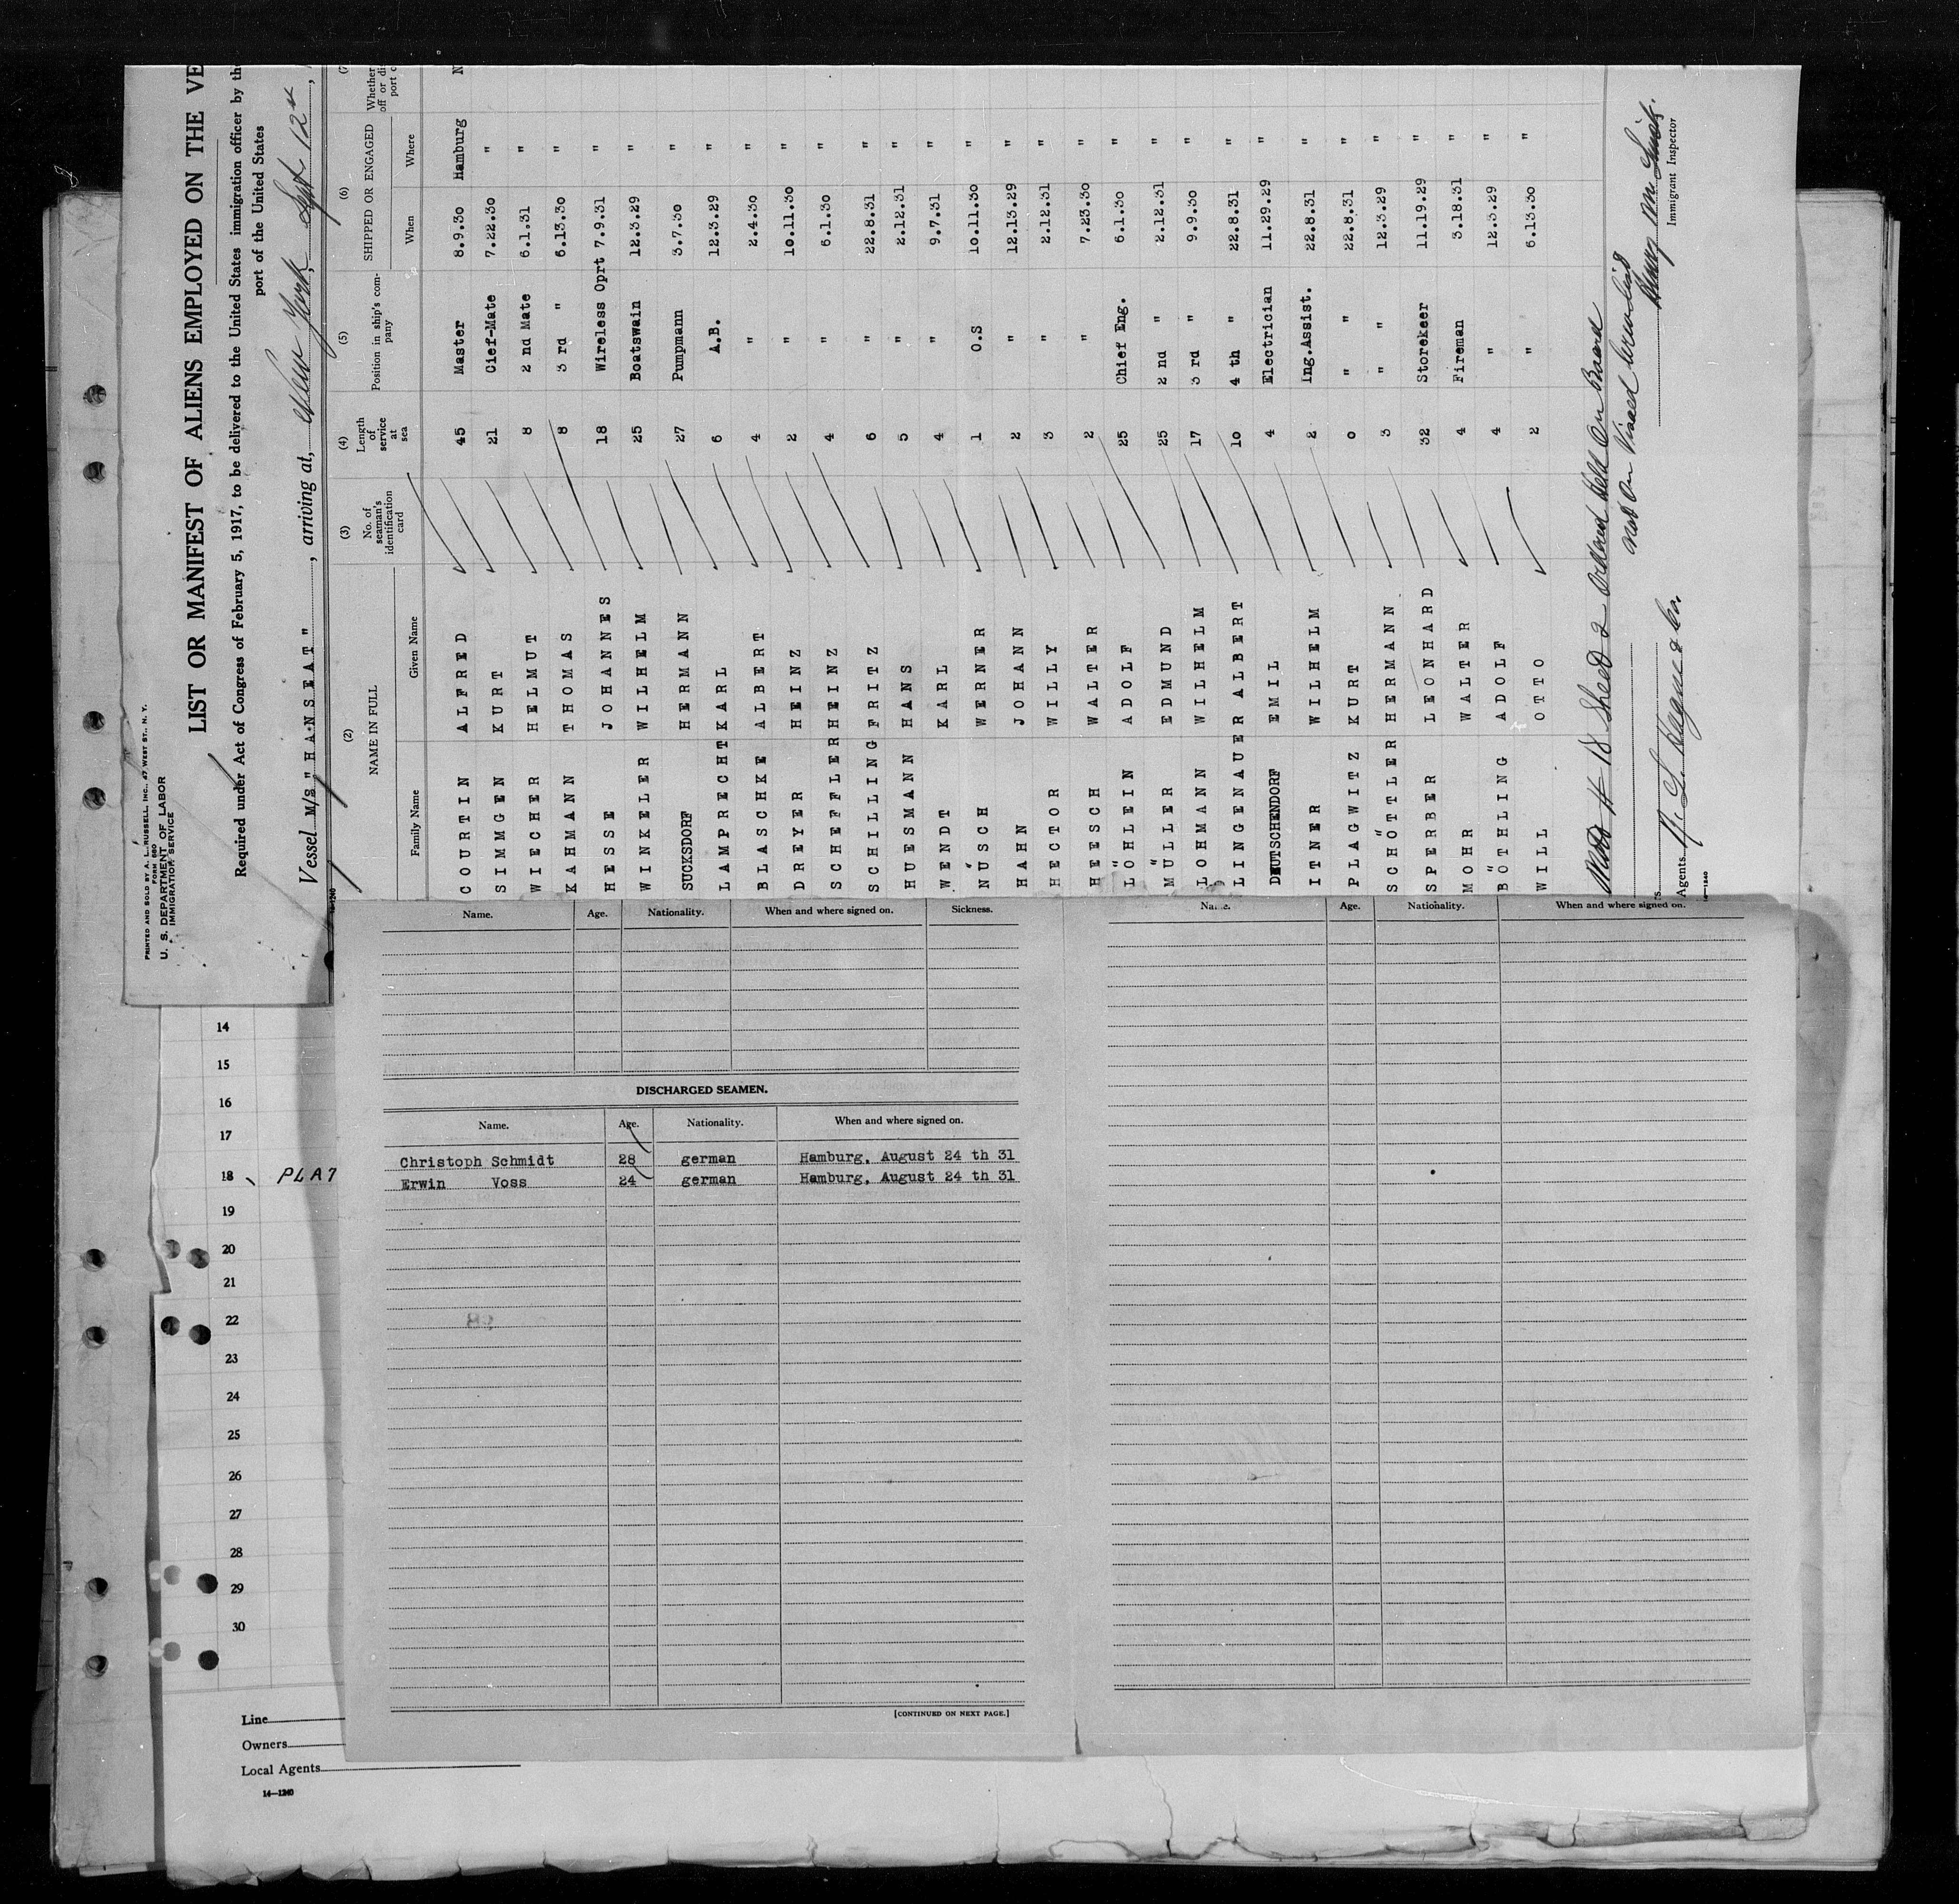 PRINTED AND SOLD BY A. L. RUSSELL, INC., 47 WEST ST., N. Y.
FORM 680
U. S. DEPARTMENT OF LABOR
IMMIGRATION SERVICE
LIST OR MANIFEST OF ALIENS EMPLOYED ON THE VE
Required under Act of Congress of February 5, 1917, to be delivered to the United States immigration officer by the
port of the United States
Vessel M/S "HANSEAT", arriving at, New York, Sept 12
14-1240
(2) (3) (4) (5) (6) (7)
NAME IN FULL No. of seaman's identification card Length of service at sea Position in ship's company SHIPPED OR ENGAGED Whether
Family Name Given Name When Where
COURTIN ALFRED 45 Master 8.9.30 Hamburg N
SIMMGEN KURT 21 Cief-Mate 7.22.30 "
WIECHER HELMUT 8 2 nd Mate 6.1.31 "
KAHMANN THOMAS 8 3 rd " 6.13.30 "
HESSE JOHANNES 18 Wireless Oprt 7.9.31 "
WINKELER WILHELM 25 Boatswain 12.3.29 "
SUCKSDORF HERMANN 27 Pumpmann 3.7.30 "
LAMPRECHT KARL 6 A.B. 12.3.29 "
BLASCHKE ALBERT 4 " 2.4.30 "
DREYER HEINZ 2 " 10.11.30 "
SCHEFFLER HEINZ 4 " 6.1.30 "
SCHILLING FRITZ 6 " 22.8.31 "
HUESMANN HANS 5 " 2.12.31 "
WENDT KARL 4 " 9.7.31 "
NÜSCH WERNER 1 O.S 10.11.30 "
HAHN JOHANN 2 " 12.13.29 "
HECTOR WILLY 3 " 2.12.31 "
HEESCH WALTER 2 " 7.23.30 "
LÖHLEIN ADOLF 25 Chief Eng. 6.1.30 "
MÜLLER EDMUND 25 2 nd " 2.12.31 "
LOHMANN WILHELM 17 3 rd " 9.9.30 "
LINGENAUER ALBERT 10 4 th " 22.8.31 "
DEUTSCHENDORF EMIL 4 Electrician 11.29.29 "
ITNER WILHELM 2 Ing.Assist. 22.8.31 "
PLAGWITZ KURT 0 " " 22.8.31 "
SCHÖTTLER HERMANN 3 " " 12.3.29 "
SPERBER LEONHARD 32 Storekeer 11.19.29 "
MOHR WALTER 4 Fireman 3.18.31 "
BÖTHLING ADOLF 4 " 12.3.29 "
WILL OTTO 2 " 6.13.30 "
# 18 Sheet 2 Ordered Held On Board
not on Visaed Crew list
Immigrant Inspector
Agents
14-1240
Name. Age. Nationality. When and where signed on. Sickness.
DISCHARGED SEAMEN.
Name. Age. Nationality. When and where signed on.
Christoph Schmidt 28 german Hamburg, August 24 th 31
Erwin Voss 24 german Hamburg, August 24 th 31
[CONTINUED ON NEXT PAGE.]
Age. Nationality. When and where signed on.
14
15
16
17
18 PLAT
19
20
21
22
23
24
25
26
27
28
29
30
Line
Owners
Local Agents
14—1240